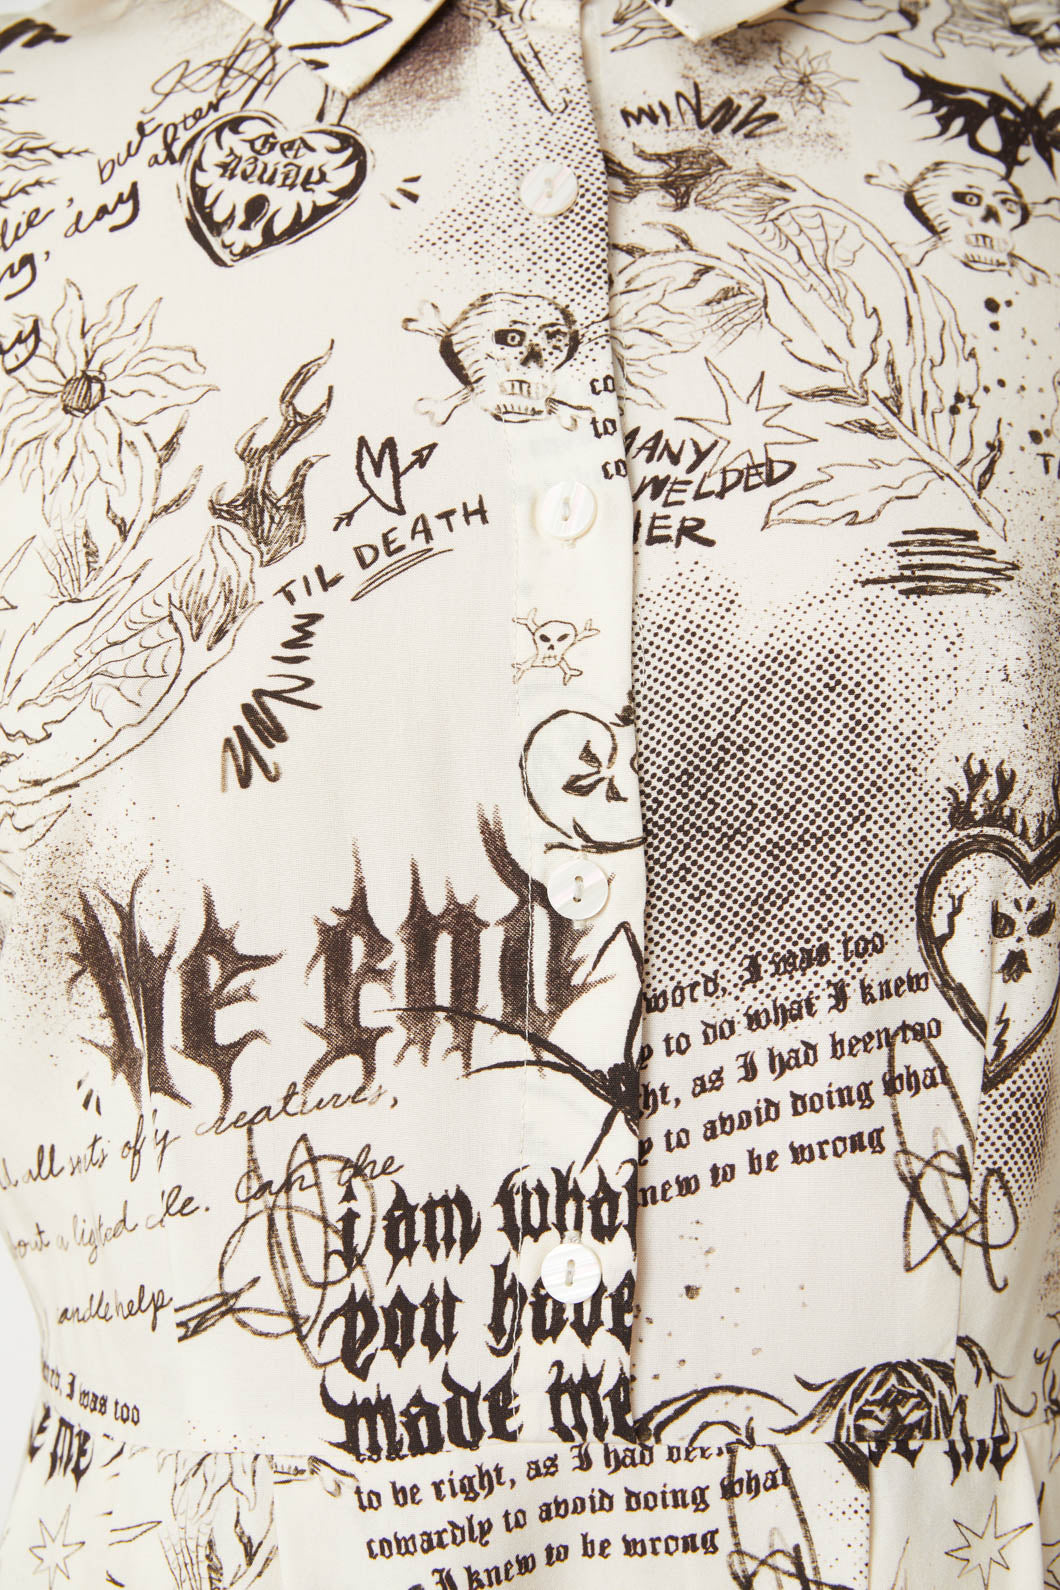 but
after
die,
day
co
to
co
ANY
WELDED
HER
TIL DEATH
ME END
word, I was too
y to do what I knew
ht, as I had been too
y to avoid doing what
new to be wrong
all sorts of creatures,
out a lighted Can the
candle help
i am what
you have
made me
I was too
E ME
ME
to be right, as I had been
cowardly to avoid doing what
I knew to be wrong